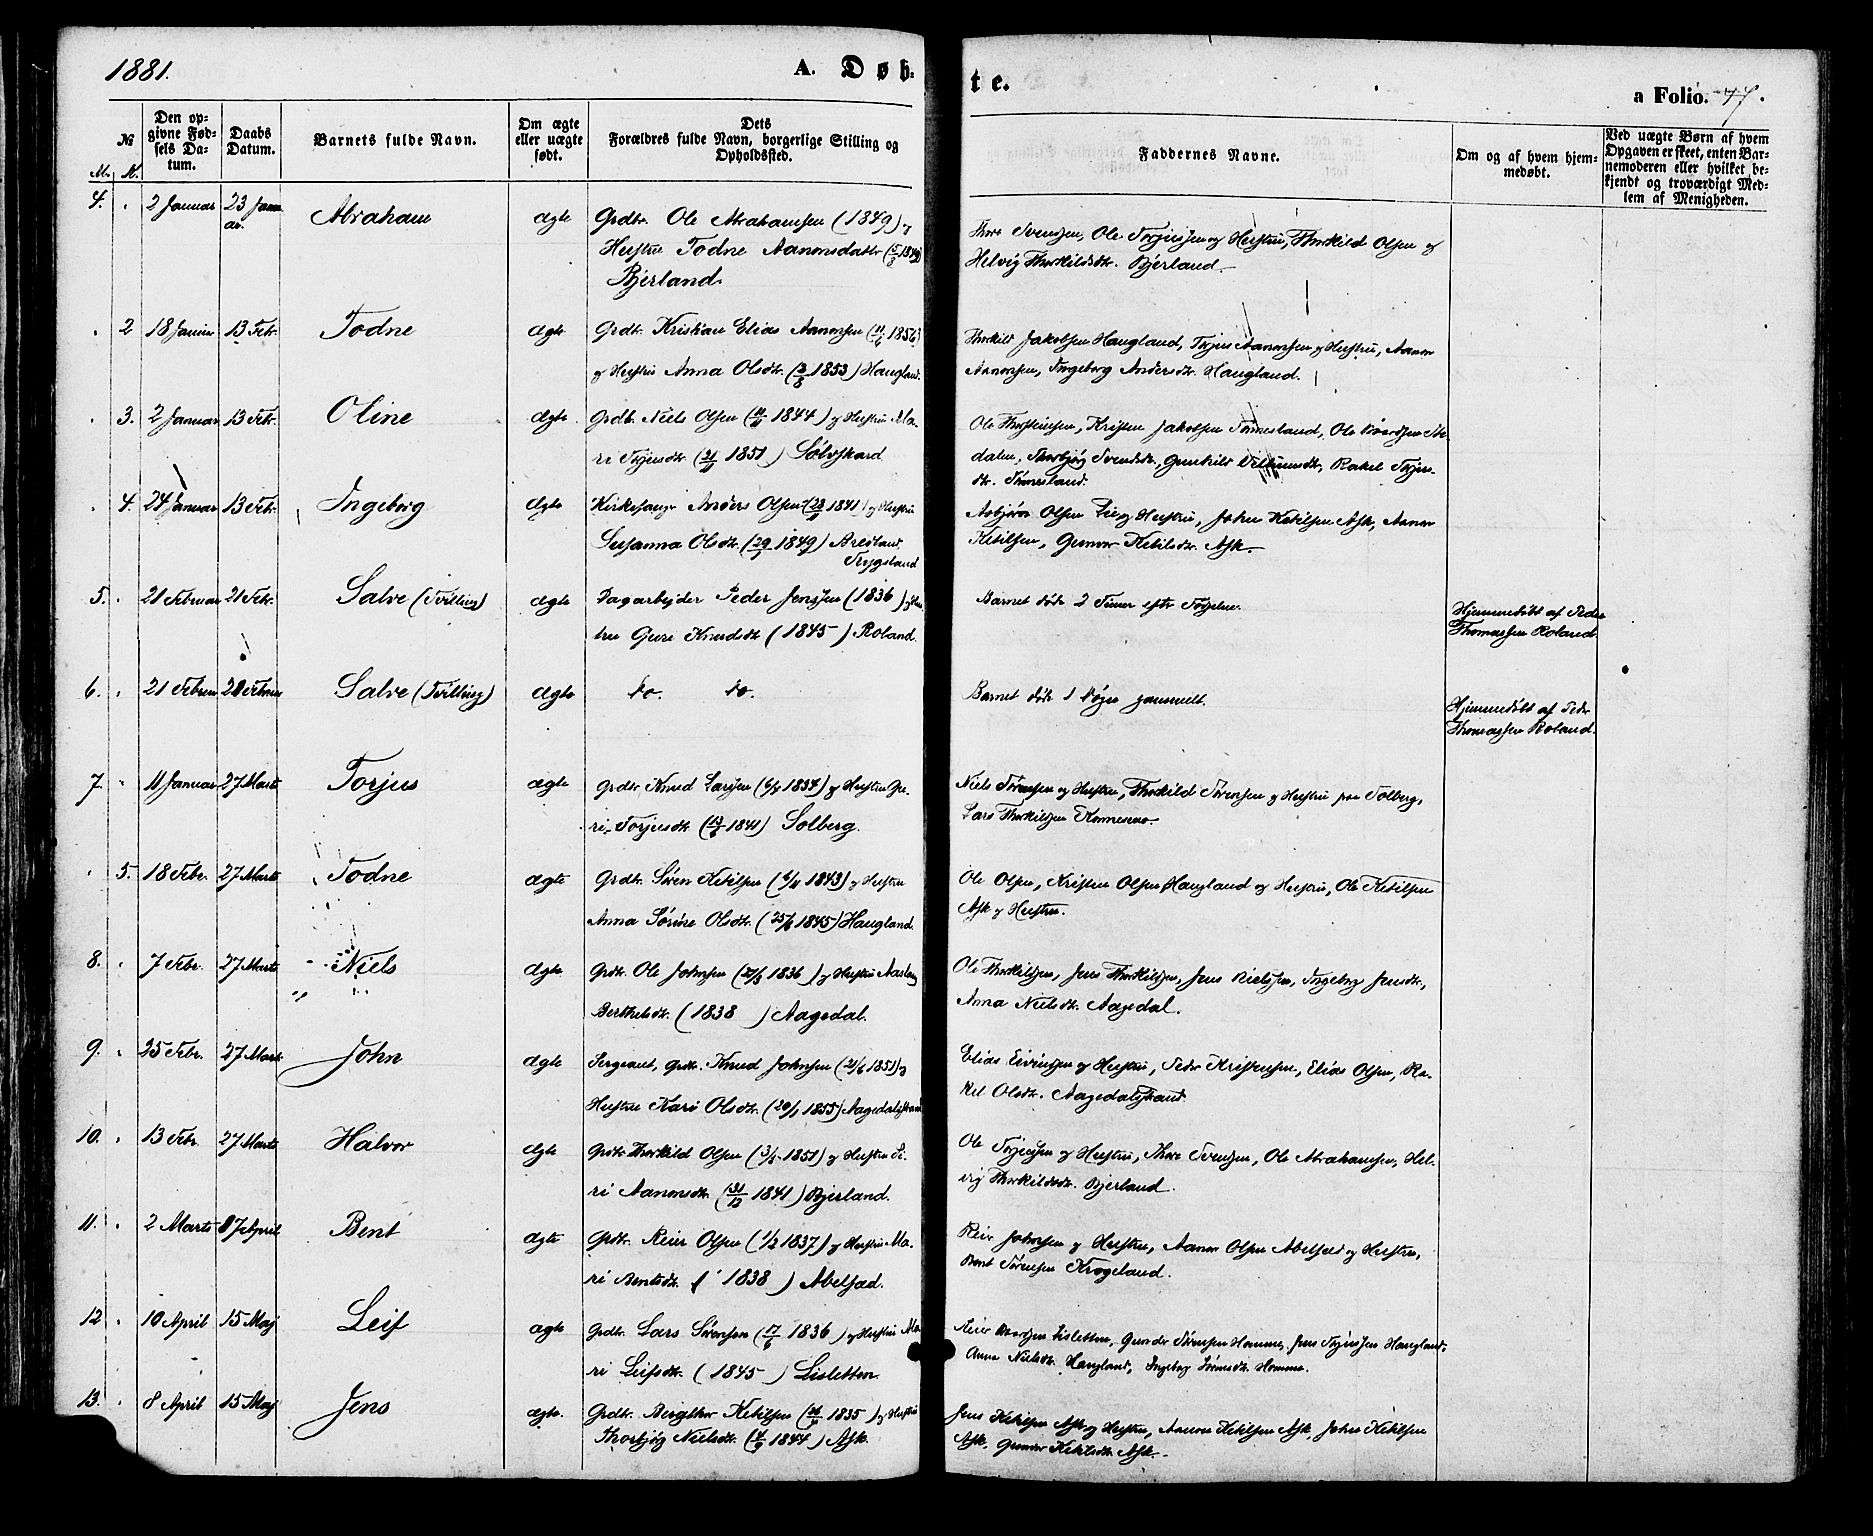 1881.
A. Døb-
te.
a Folio. 77.
№
M. K.
Den op-
givne Fød-
sels Da-
tum.
Daabs
Datum.
Barnets fulde Navn.
Om ægte
eller uægte
født.
Dets
Forældres fulde Navn, borgerlige Stilling og
Opholdssted.
Faddernes Navne.
Om og af hvem hjem-
medøbt.
Ved uægte Børn af hvem
Opgaven er skeet, enten Bar-
nemoderen eller hvilket be-
kjendt og troværdigt Med-
lem af Menigheden.
4. 2 Januar 23 Janu
ar. Abraham ægte Grdbr. Ole Abrahamsen (1849) og
Hustru Todne Aanonsdatter
Bjerland.
Thore Svendsen, Ole Torjussen og Hustru, Thorkild Olsen og
Helvig Thorkildsdtr. Bjerland.
2 18 Januar 13 Febr. Todne ægte Grdbr. Kristian Elias Aanonsen (11/6 1856)
og Hustru Anna Olsdtr. (3/8 1853) Haugland.
Thorkild Jakobsen Haugland, Torjus Aanonsen og Hustru, Aanon
Aanonsen, Ingeborg Andersdtr. Haugland.
3. 2 Januar 13 Febr. Oline ægte Grdbr. Niels Olsen 1844) og Hustru Ma-
ri Torjusdtr. 1851) Sølvskard
Ole Thorsteinsen, Kristen Jakobsen Tonnesland, Ole
dalen, Thorbjøg Svendsdtr., Gunhild Rakel Torjus-
dtr. Tonnesland.
4. 24 Januar 13 Febr. Ingeborg ægte Kirkesanger Anders Olsen 1841) og Hustru
Susanna Olsdtr. 1849)
Trygsland
Asbjørn Olsen Lie og Hustru, John Ketilsen Ask, Aanon
Ketilsen, Gunvor Ketilsdtr. Ask.
5. 21 Februar 21 Febr. Salve (Tvilling) ægte Dagarbejder Peder Jensen (1836) og Hus-
tru Guri Knudsdtr. (1845) Roland.
Barnet døde 2 Timer efter Fødselen.
Hjemmedøbt af Peder
Thomassen Roland.
6. 21 Februar Salve (Tvilling) ægte Do. Do.
Barnet døde 1 Døgn gammelt.
Hjemmedøbt af Peder
Thomassen Roland.
7. 11 Januar 27 Marts Torjus ægte Grdbr. Knud Larsen 1834) og Hustru Gu-
ri Torjusdtr. 1841) Solberg.
Niels Sørensen og Hustru, Thorkild Sørensen og Hustru paa Solberg,
Lars Thorkildsen Konnesmo.
5. 18 Febr. 27 Marts Todne ægte Grdbr. Søren Ketilsen 1843) og Hustru
Anna Sørine Olsdtr. (25/6 1845) Haugland.
Ole Olsen, Kristen Olsen Haugland og Hustru, Ole Ketilsen
Ask og Hustru.
8. 7 Febr. 27 Marts Niels ægte Grdbr. Ole Johnsen 1836) og Hustru Aaslaug
Berthelsdtr. (1838) Aagedal.
Ole Thorkildsen, Jens Thorkildsen, Jens Nielsen, Ingeborg Jensdtr.,
Anna Nielsdtr. Aagedal.
9. 25 Febr. 27 Marts John ægte Sergeant, Grdbr. Knud Johnsen (21/6 1851) og
Hustru Kari Olsdtr. 1855)
Elias Eivindsen og Hustru, Peder Kristensen, Elias Olsen, Ra-
kel Olsdtr.
10. 13 Febr. 27 Marts Halvor ægte Grdbr. Thorkild Olsen 1851) og Hustru Si-
ri Aanonsdtr. (31/12 1841) Bjerland.
Ole Torjussen og Hustru, Thore Svendsen, Ole Abrahamsen, Hel-
vig Thorkildsdtr. Bjerland.
11. 2 Marts April Bent ægte Grdbr. Reier Olsen (1/2 1837) og Hustru Ma-
ri Bentsdtr. (1838) Abelsæd.
Reier Johnsen og Hustru, Aanon Olsen Abelsæd og Hustru,
Bent Sørensen Krogeland.
12 10 April 15 Maj Leif ægte Grdbr. Lars Sørensen (17/6 1836) og Hustru Ma-
ri Leifsdtr. (1845) Lisletten
Reier Lisletten, Gunder Sørensen Homme, Jens Torjussen Haugland,
Anne Nielsdtr. Haugland, Ingeborg Homme.
13. 8 April 15 Maj Jens ægte. Grdbr. Bergthor Ketilsen 1835) og Hustru
Thorbjøg Nielsdtr. 1844) Ask.
Jens Ketilsen Ask og Hustru, Aanon Ketilsen Ask, John Ketilsen
Ask, Gunvor Ketilsdtr. Ask.